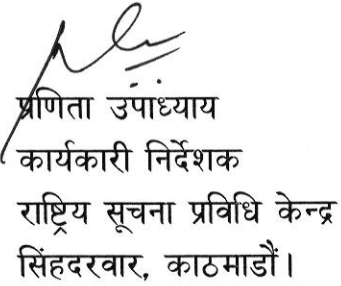 प्रणिता उपाध्याय
कार्यकारी निर्देशक
राष्ट्रिय सूचना प्रविधि केन्द्र
सिंहदरवार, काठमाडौं।